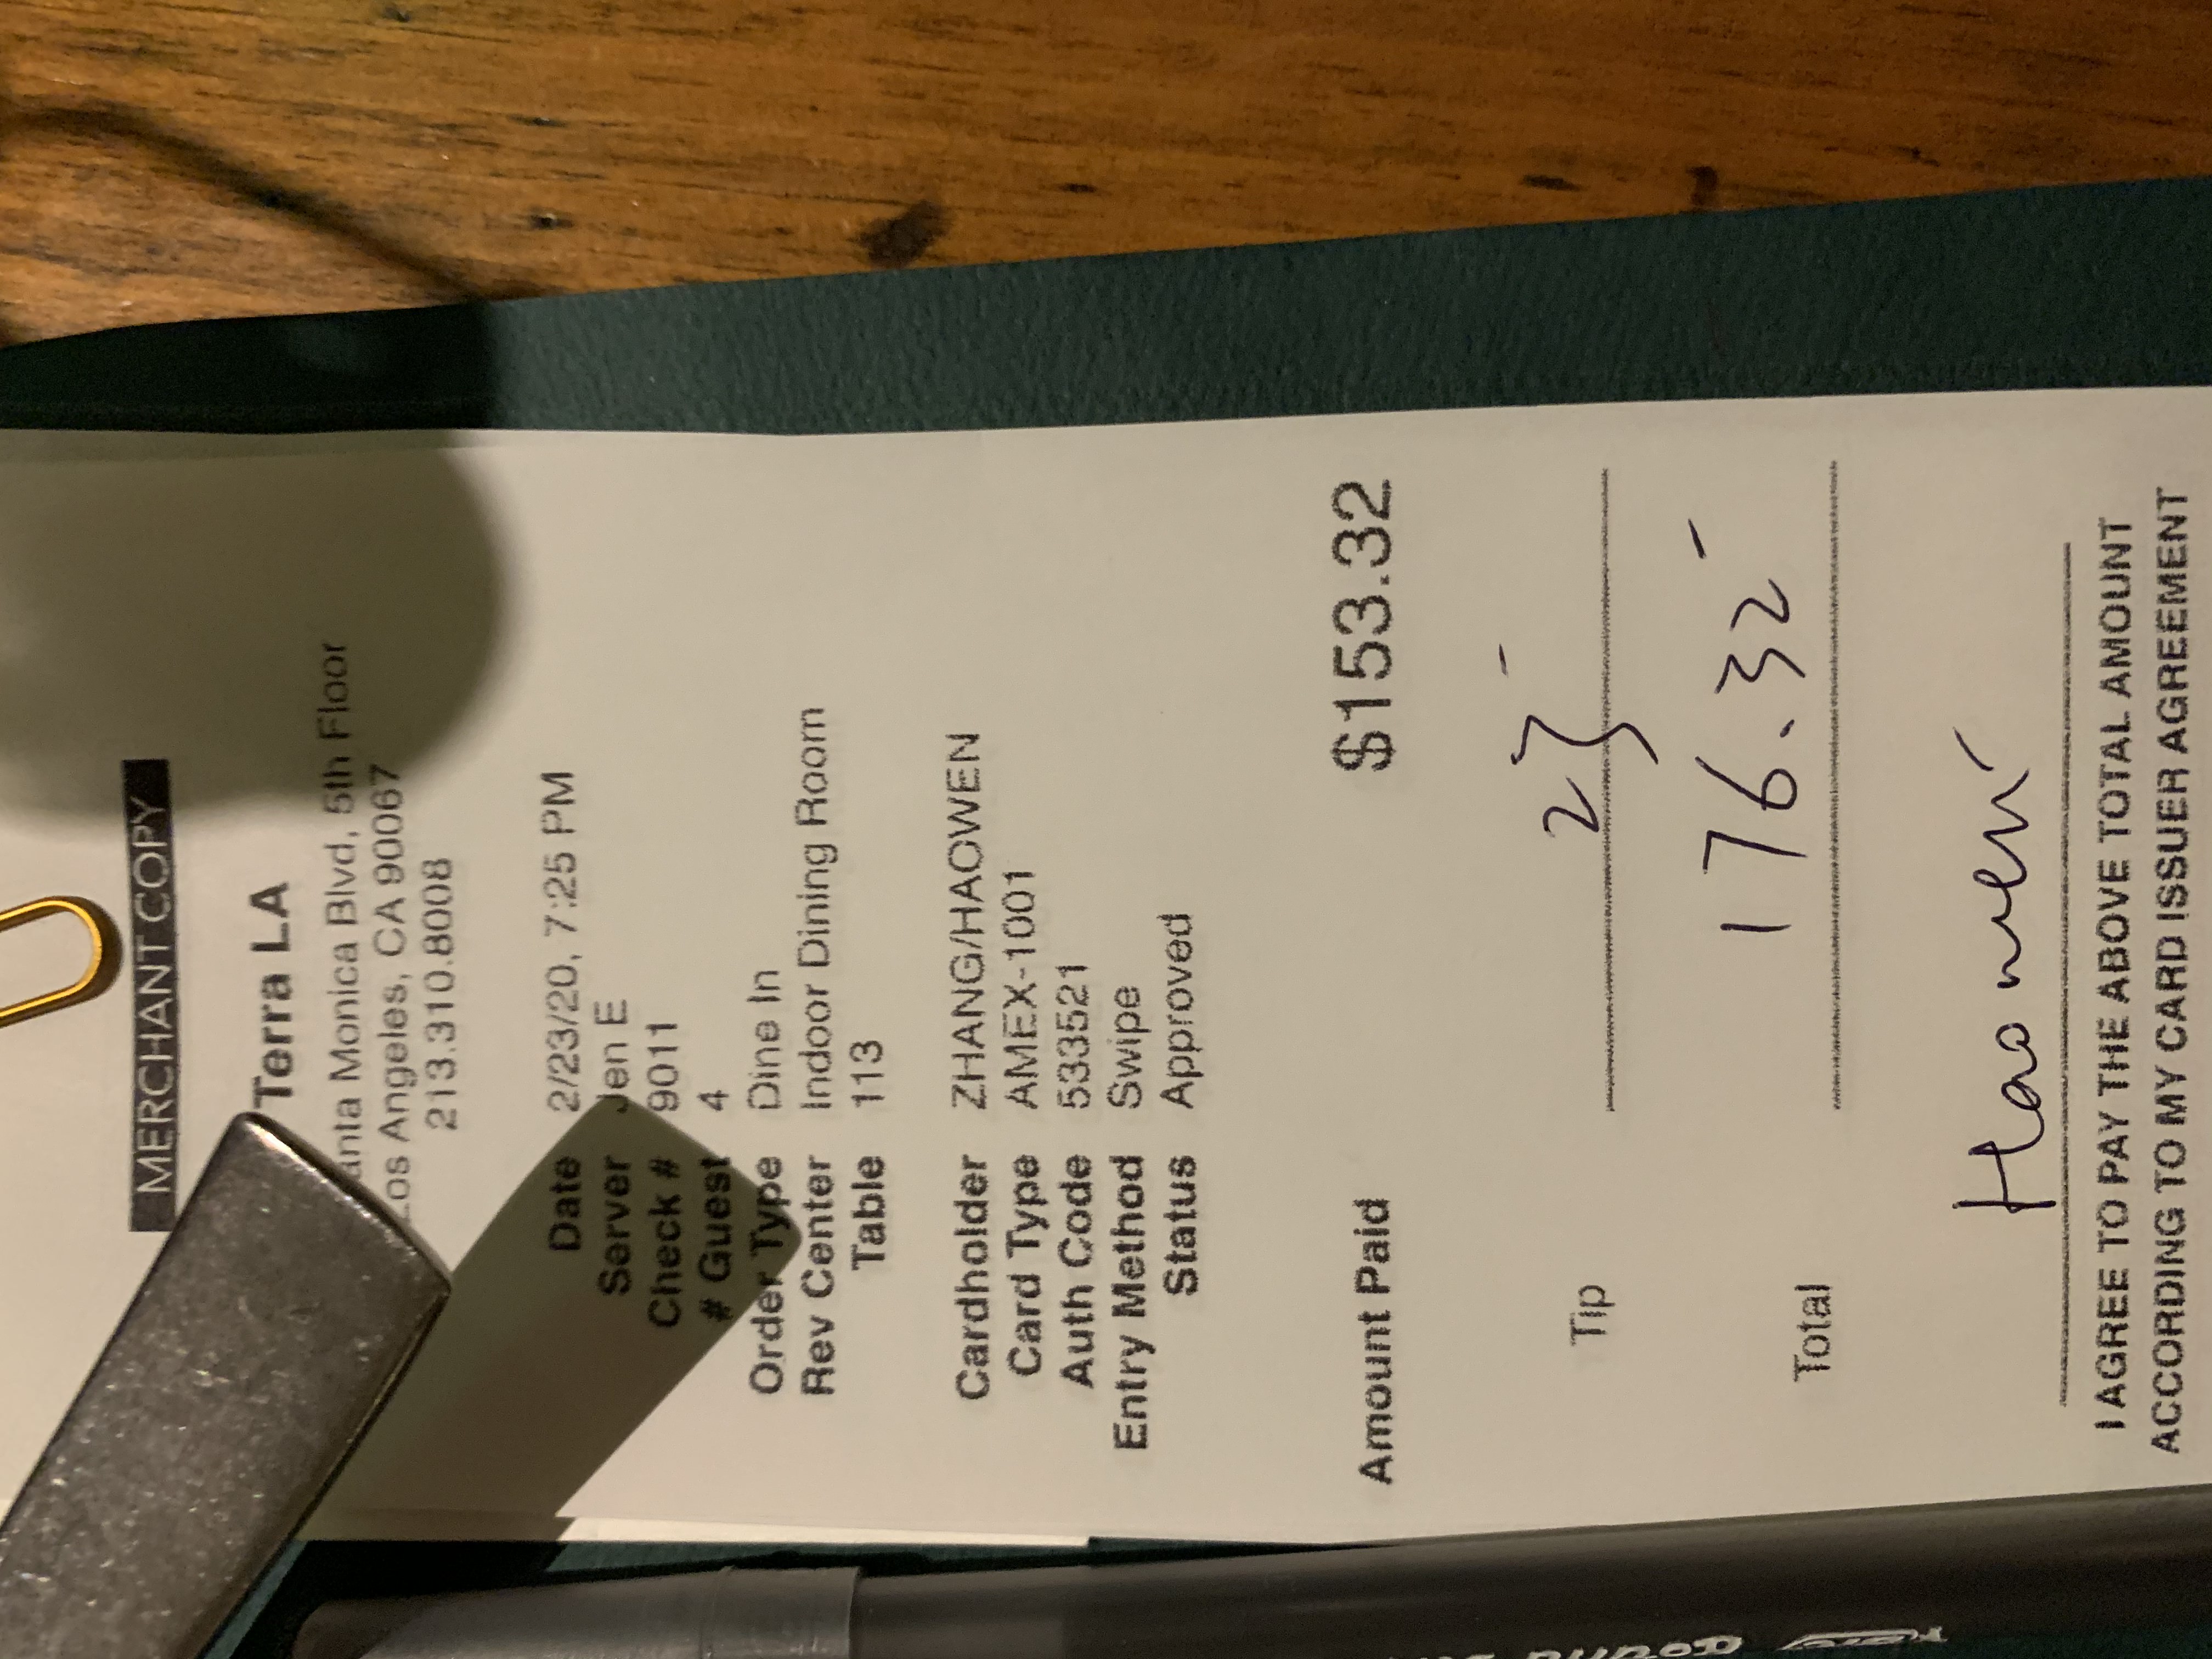 MERCHANT COPY
Terra LA
Monica Blvd, 5th Floor
Los Angeles, CA 90067
213.310.8008
Date 2/23/20, 7:25 PM
Server Jen E
Check # 9011
# Guest 4
Order Type Dine In
Rev Center Indoor Dining Room
Table 113
Cardholder ZHANG/HAOWEN
Card Type AMEX-1001
Auth Code 533521
Entry Method Swipe
Status Approved
Amount Paid $153.32
Tip 23
Total 176.32
Haowen
I AGREE TO PAY THE ABOVE TOTAL AMOUNT
ACCORDING TO MY CARD ISSUER AGREEMENT